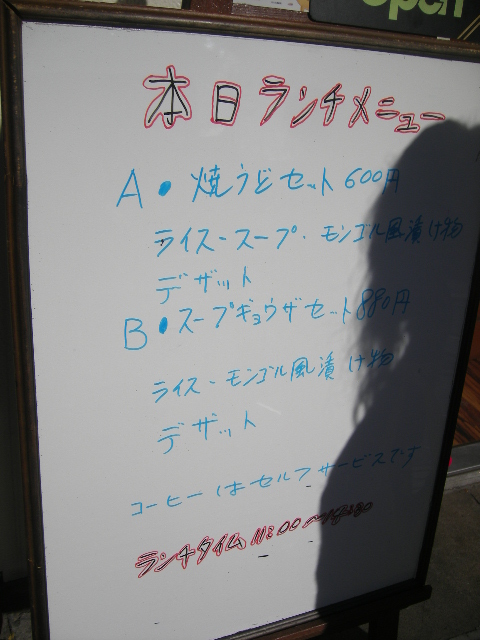 open
本日ランチメニュー
A・焼うどセット600円
ライス・スープ・モンゴル風漬け物
デザット
B・スープギョウザセット880円
ライス・モンゴル風漬け物
デザット
コーヒーはセルフサービスです
ランチタイム11:00〜